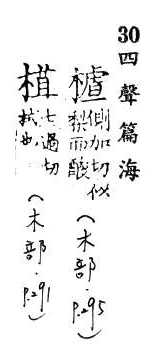 30 四聲篇海
樝 側加切似
棃而酸
(木部.P.295)
七過切
拭也
(木部.P.291)